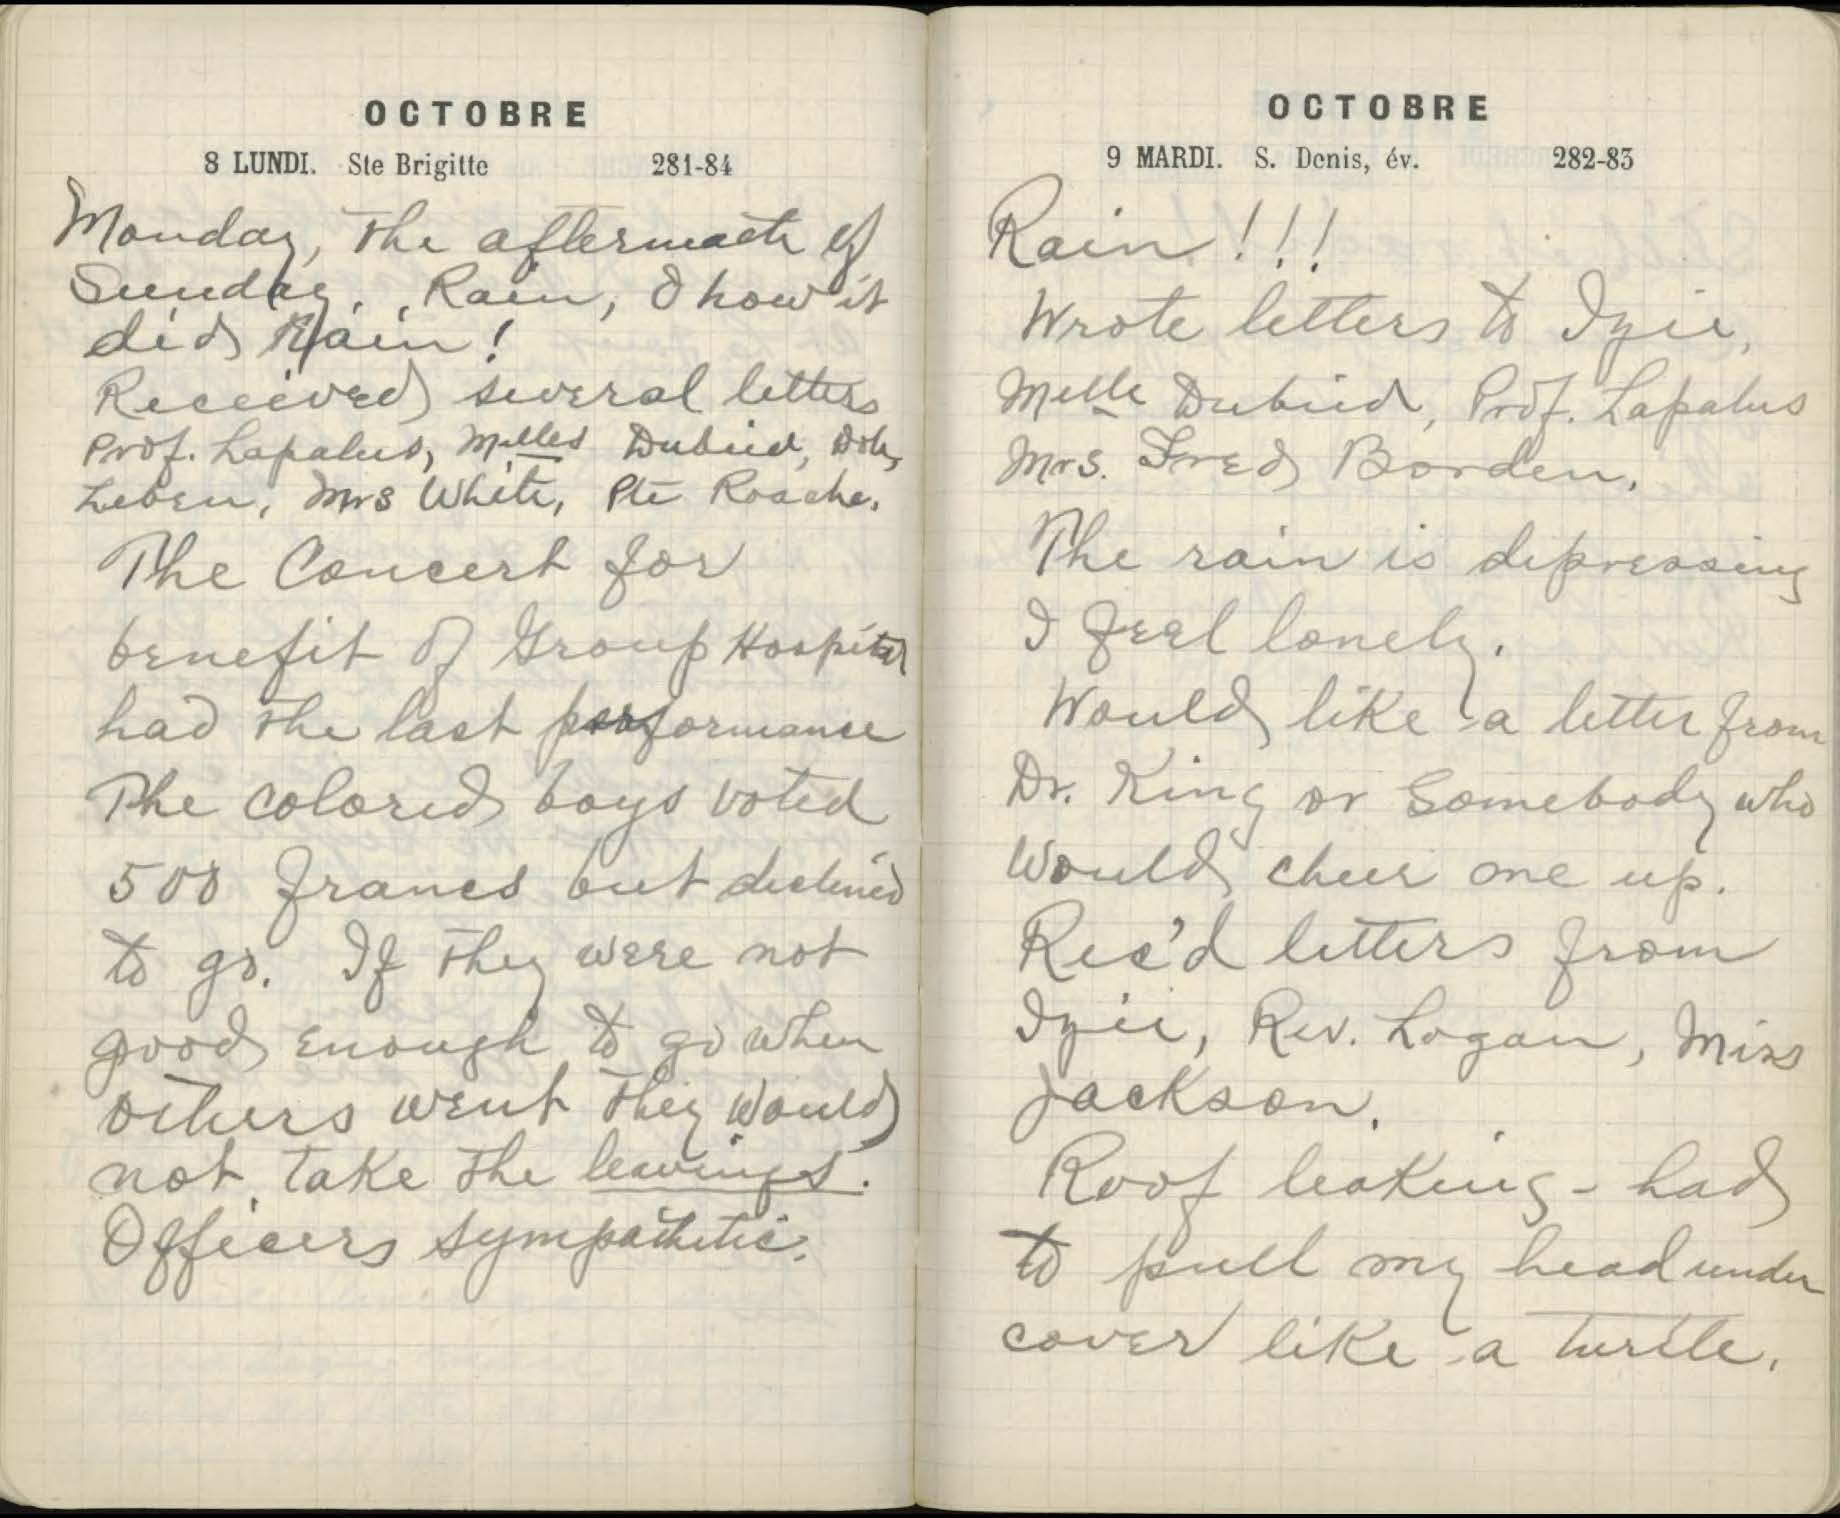 OCTOBRE
8 LUNDI. Ste Brigitte 281-84
Monday, the aftermath of
Sunday. Rain, O how it
did Rain!
Received several letters
Prof. Lapalus, Mlles Dubied,
Leben, Mrs White, Pte Roache.
The Concert for
benefit of Group Hospital
had the last performance
The colored boys voted
500 francs but declined
to go. If they were not
good enough to go when
others went they would
not take the leavings.
Officers sympathetic.
OCTOBRE
9 MARDI. S. Denis, év. 282-83
Rain!!!
Wrote letters to Izie,
Melle Dubied, Prof. Lapalus
Mrs. Fred Borden.
The rain is depressing
I feel lonely.
Would like a letter from
Dr. King or Somebody who
would cheer me up.
Rec'd letters from
Izie, Rev. Logan, Miss
Jackson.
Roof leaking - had
to pull my head under
cover like a turtle.